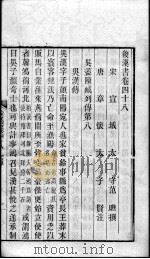 後漢書卷四十八
宋宣城太守范曄撰
唐章懷太子賢注
吳蓋陳臧列傳第八
吳漢傳
吳漢字子顏南陽宛人也家貧給事縣為亭長王莽末
以賓客犯法乃亡命至漁陽 資用乏以
販馬自業往來燕薊間所至皆交結豪傑更始立使使
者韓鴻徇河北 或謂鴻
曰吳子顏奇士也可與計事鴻召見漢甚悅之遂承制